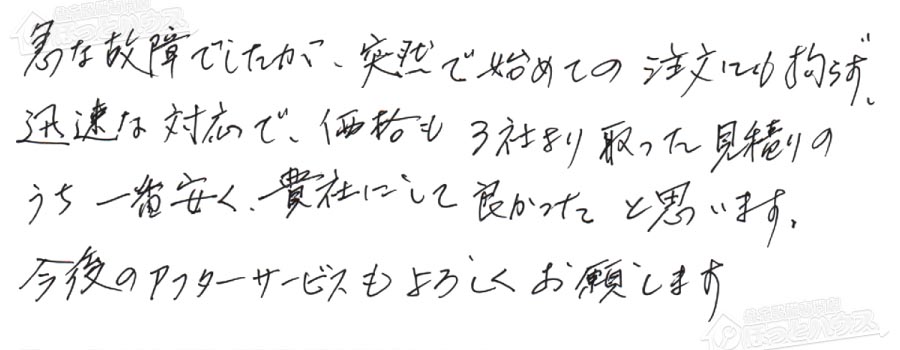 急な故障でしたが、突然で始めての注文にも拘らず、
迅速な対応で、価格も3社より取った見積りの
うち一番安く、貴社にして良かったと思います。
今後のアフターサービスもよろしくお願します
ほっとハウス
ほっとハウス